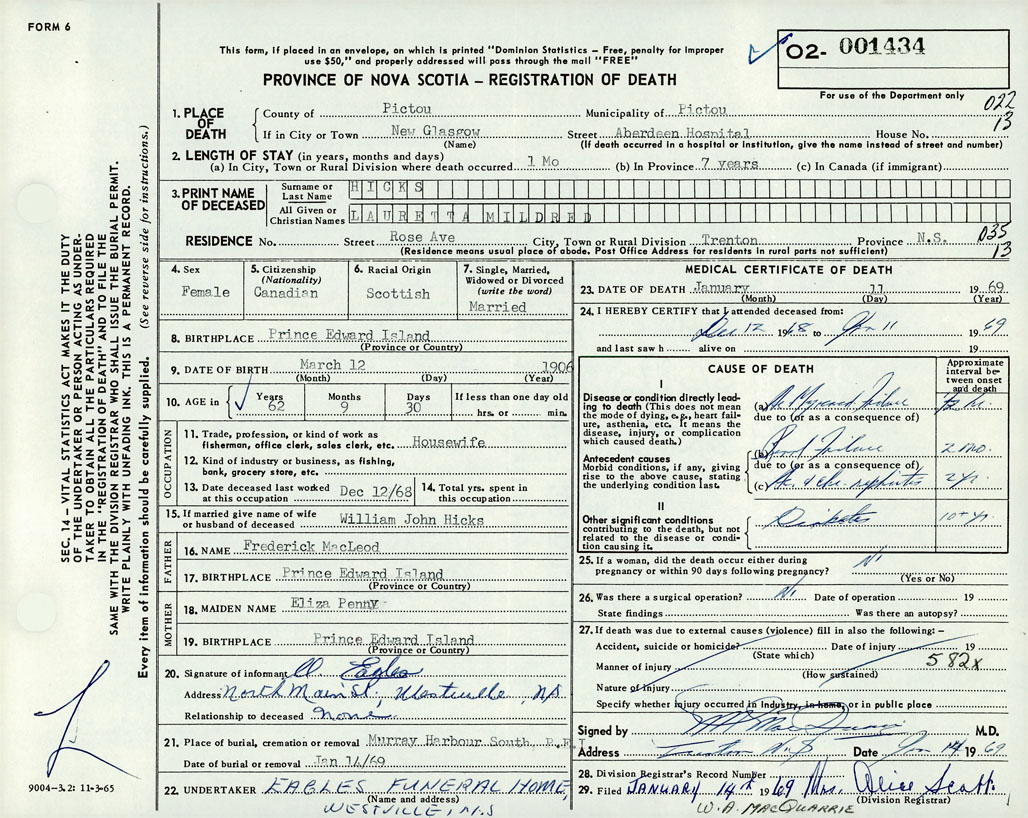 FORM 6
This form, if placed in an envelope, on which is printed "Dominion Statistics – Free, penalty for improper
use $50," and properly addressed will pass through the mail "FREE"
O2- 001434
For use of the Department only
PROVINCE OF NOVA SCOTIA – REGISTRATION OF DEATH
022
13
1. PLACE OF DEATH County of Pictou Municipality of Pictou
If in City or Town New Glasgow Street Aberdeen Hospital House No.
(Name) (If death occurred in a hospital or institution, give the name instead of street and number)
2. LENGTH OF STAY (in years, months and days)
(a) In City, Town or Rural Division where death occurred 1 Mo (b) In Province 7 years (c) In Canada (if immigrant)
3. PRINT NAME OF DECEASED Surname or Last Name HICKS
All Given or Christian Names LAURETTA MILDRED
RESIDENCE No. Street Rose Ave City, Town or Rural Division Trenton Province N.S. 035
(Residence means usual place of abode. Post Office Address for residents in rural parts not sufficient) 13
4. Sex Female
5. Citizenship (Nationality) Canadian
6. Racial Origin Scottish
7. Single, Married, Widowed or Divorced (write the word) Married
8. BIRTHPLACE Prince Edward Island
(Province or Country)
9. DATE OF BIRTH March 12 1906
(Month) (Day) (Year)
10. AGE in Years 62 Months 9 Days 30 If less than one day old hrs. or min.
OCCUPATION
11. Trade, profession, or kind of work as
fisherman, office clerk, sales clerk, etc. Housewife
12. Kind of industry or business, as fishing,
bank, grocery store, etc.
13. Date deceased last worked at this occupation Dec 12/68 14. Total yrs. spent in this occupation
15. If married give name of wife or husband of deceased William John Hicks
FATHER
16. NAME Frederick MacLeod
17. BIRTHPLACE Prince Edward Island
(Province or Country)
MOTHER
18. MAIDEN NAME Eliza Penny
19. BIRTHPLACE Prince Edward Island
(Province or Country)
20. Signature of informant O. Eagles
Address North Main St, Westville, NS
Relationship to deceased none
21. Place of burial, cremation or removal Murray Harbour South, P.E.I.
Date of burial or removal Jan 14/69
22. UNDERTAKER EAGLES FUNERAL HOME,
(Name and address)
WESTVILLE, N.S
MEDICAL CERTIFICATE OF DEATH
23. DATE OF DEATH January 11 1969
(Month) (Day) (Year)
24. I HEREBY CERTIFY that I attended deceased from:
Dec 12 1968 to Jan 11 1969
and last saw h alive on 19
CAUSE OF DEATH
Approximate interval between onset and death
I
Disease or condition directly leading to death (This does not mean the mode of dying, e.g., heart failure, asthenia, etc. It means the disease, injury, or complication which caused death.)
(a) Myocard Failure
due to (or as a consequence of)
Antecedent causes
Morbid conditions, if any, giving rise to the above cause, stating the underlying condition last.
(b) Renal Failure 2 mo.
due to (or as a consequence of)
(c) nephritis 2 yr.
II
Other significant conditions
contributing to the death, but not related to the disease or condition causing it.
Diabetes 10+ yr.
25. If a woman, did the death occur either during
pregnancy or within 90 days following pregnancy? No
(Yes or No)
26. Was there a surgical operation? No Date of operation 19
State findings Was there an autopsy?
27. If death was due to external causes (violence) fill in also the following: –
Accident, suicide or homicide? Date of injury 19
(State which) 582x
Manner of injury
(How sustained)
Nature of injury
Specify whether injury occurred in industry, in home, or in public place
Signed by M.D.
Address Trenton N.S Date Jan 14 1969
28. Division Registrar's Record Number
29. Filed JANUARY 14th 1969 Mrs. Alice Scott
(Division Registrar)
W. A. MACQUARRIE
SEC. 14 – VITAL STATISTICS ACT MAKES IT THE DUTY
OF THE UNDERTAKER OR PERSON ACTING AS UNDER-
TAKER TO OBTAIN ALL THE PARTICULARS REQUIRED
IN THE "REGISTRATION OF DEATH" AND TO FILE THE
SAME WITH THE DIVISION REGISTRAR WHO SHALL ISSUE THE BURIAL PERMIT.
WRITE PLAINLY WITH UNFADING INK. THIS IS A PERMANENT RECORD.
Every item of information should be carefully supplied. (See reverse side for instructions.)
9004-3.2: 11-3-65